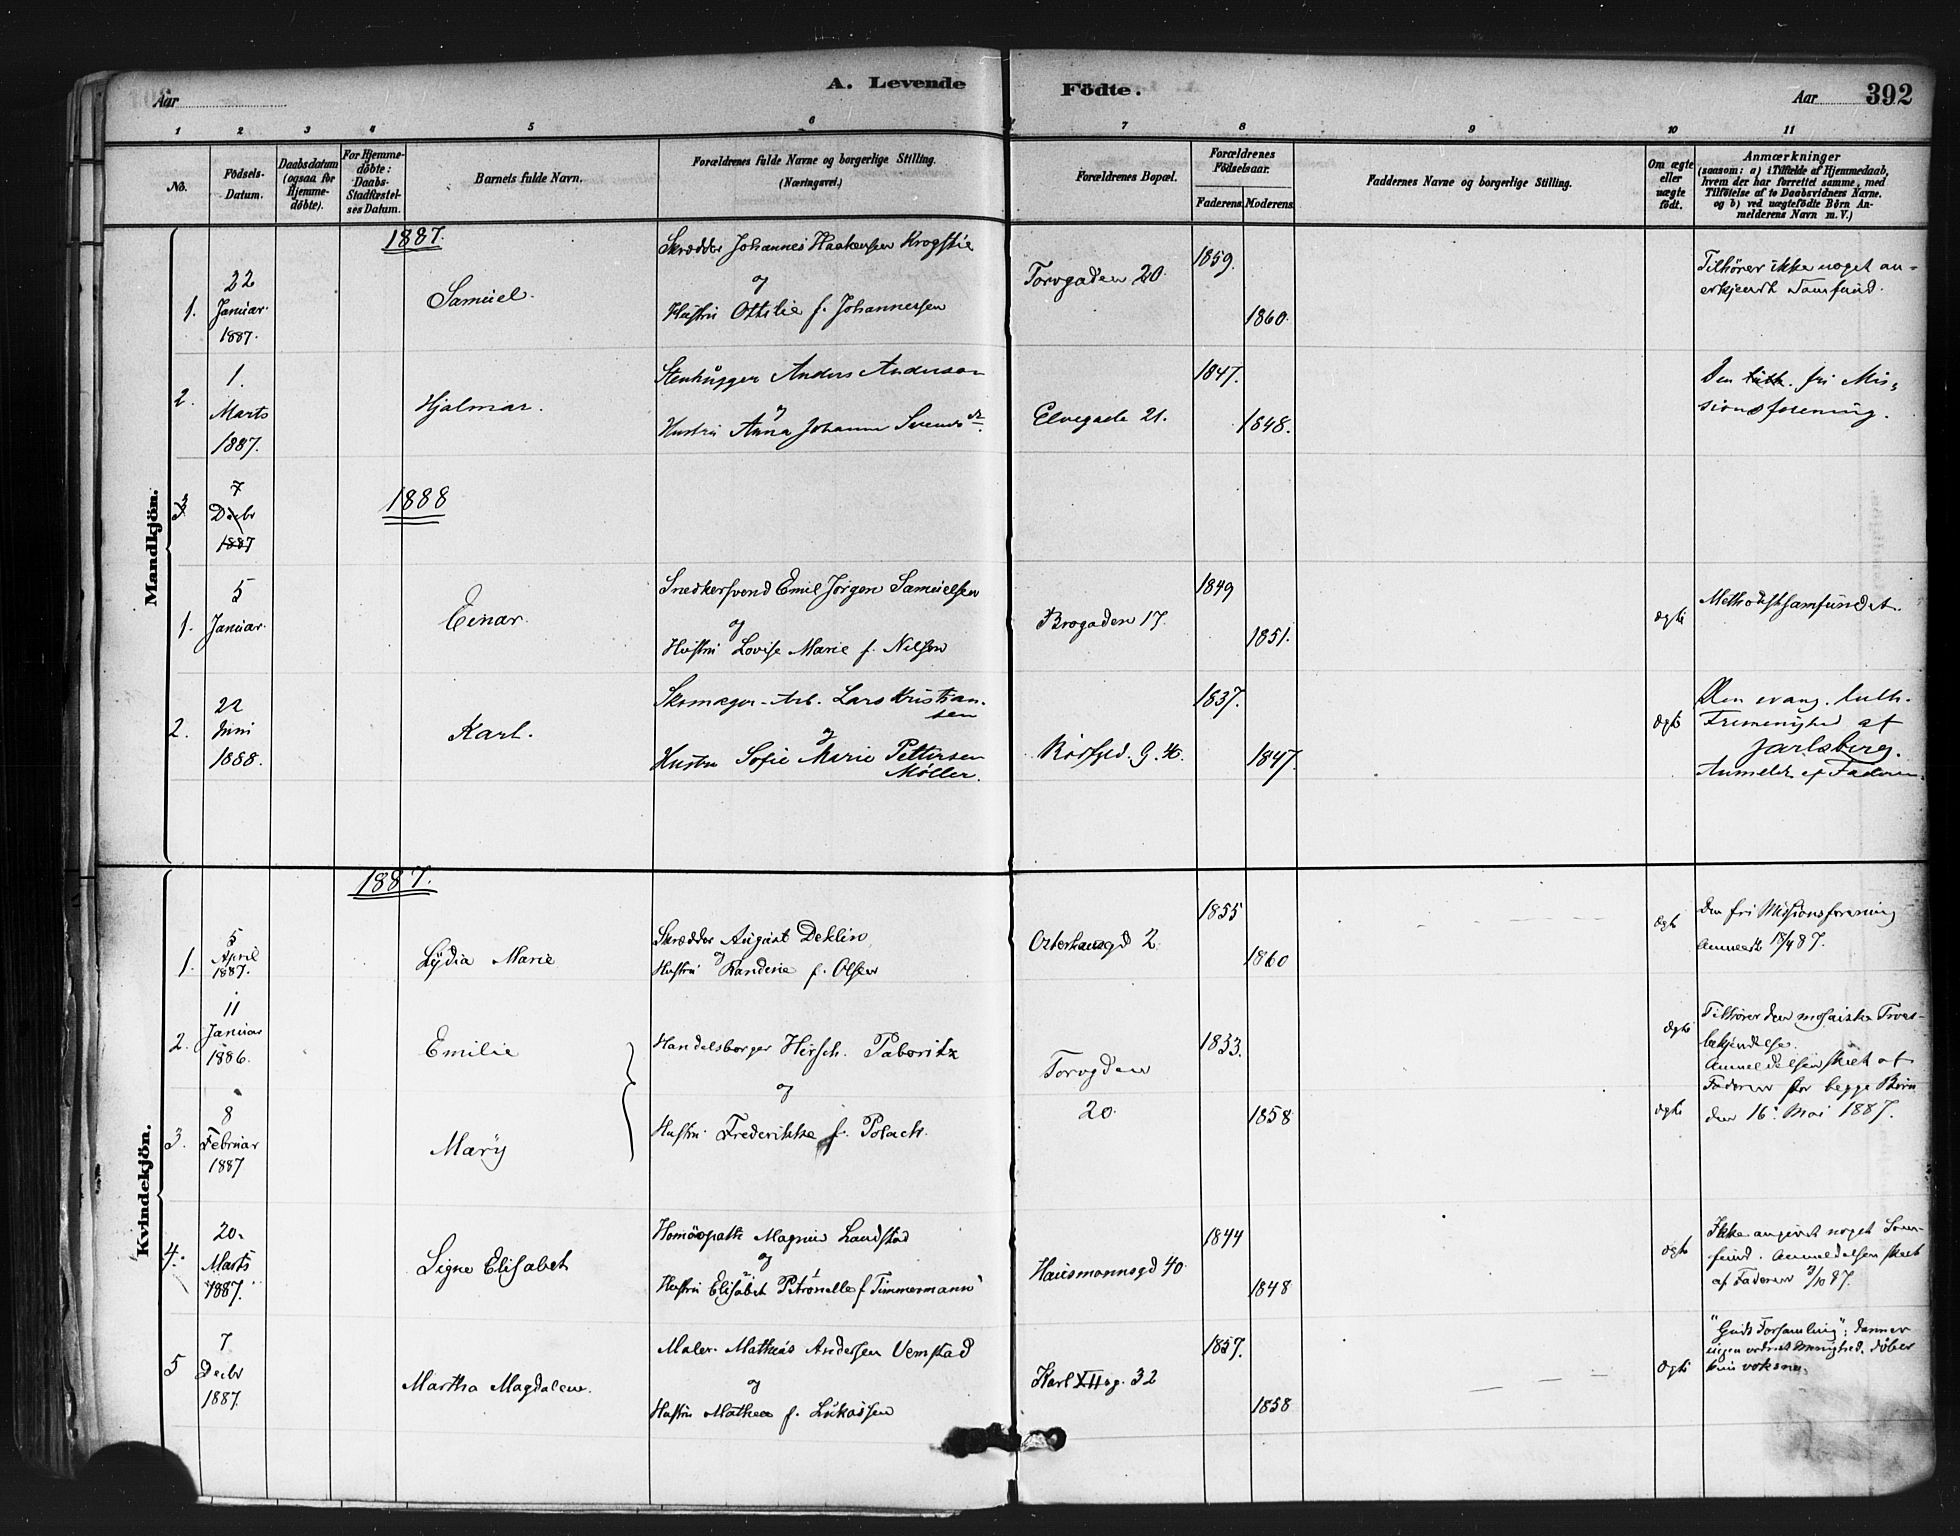 A. Levende Födte.
Aar
Aar 392
1 2 3 4 5 6 7 8 9 10 11
No.
Födsels-Datum.
Daabsdatum (ogsaa for Hjemme-döbte).
For Hjemme-döbte: Daabs-Stadfæstel-ses Datum.
Barnets fulde Navn.
Forældrenes fulde Navne og borgerlige Stilling. (Næringsvei.)
Forældrenes Bopæl.
Forældrenes Födselsaar.
Faderens. Moderens.
Faddernes Navne og borgerlige Stilling.
Om ægte eller uægte födt.
Anmærkninger
(saasom: a) i Tilfælde af Hjemmedaab,
hvem der har forrettet samme, med
Tilföielse af to Daabsvidners Navne.
og b) ved uægtefödte Börn An-
melderens Navn m. V.)
Mandkjön.
1887.
1.
22
Januar
1887.
Samuel.
Skrædder Johannes Haakensen Krogstie
og
Hustru Ottilie f. Johannessen
Torvgaden 20.
1859.
1860.
Tilhörer ikke noget an-
erkjendt Samfund.
2.
1.
Marts
1887.
Hjalmar.
Stenhugger Anders Anderson
og
Hustru Anna Johanne
Elvegade 21.
1847.
1848.
Den luth. fri Mis-
sionsforening.
3
7
Decbr
1887
1888
1.
5
Januar.
Einar.
Snedkersvend Emil Jörgen Samuelsen
og
Hustru Lovise Marie f. Nilsen
Brogaden 17.
1849
1851.
ægte
Methodistsamfundet.
2.
22
Juni
1888.
Karl.
Skomager-Arb. Lars Kristian-
sen
og
Hustru Sofie Marie Pettersen
Møller.
1837.
1847.
ægte
Den evang. luth.
Frimenighed af
Jarlsberg.
Anmeldt af Faderen.
Kvindekjön.
1887.
1.
5
April
1887.
Lydia Marie
Skrædder August Deklin
og
Hustru Randine f. Olsen
2
1855
1860
ægte
Den fri Missionsforening
Anmeldt 18/4 87.
2.
11
Januar
1886.
Emilie
Handelsborger Hirsch. Paboritz
og
Hustru Frederikke f. Polack.
Torvgden
20.
1833.
1858
ægte
Tilhører den mosaiske Troes-
bekjendelse.
Anmeldelsen skeet af
Faderen for begge Börn
den 16. Mai 1887.
3.
8
Februar
1887
Mary
ægte
4.
20.
Marts
1887.
Signe Elisabet
Homöopath Magnus Landstad
og
Hustru Elisabet Petronelle f Timmermann
Hausmannsgd 40.
1844
1848
ægte
Ikke angivet noget Sam-
fund. Anmeldelsen skeet
af Faderen 3/10 87.
5
7
Decbr
1887.
Martha Magdalene.
Maler Mathias Andersen Vemstad
og
Hustru Mathea f. Lukassen
Karl XII g. 32
1857.
1858
ægte
"Guds Forsamling"; danner
ingen ordnet Menighed. døber
kun voksne.